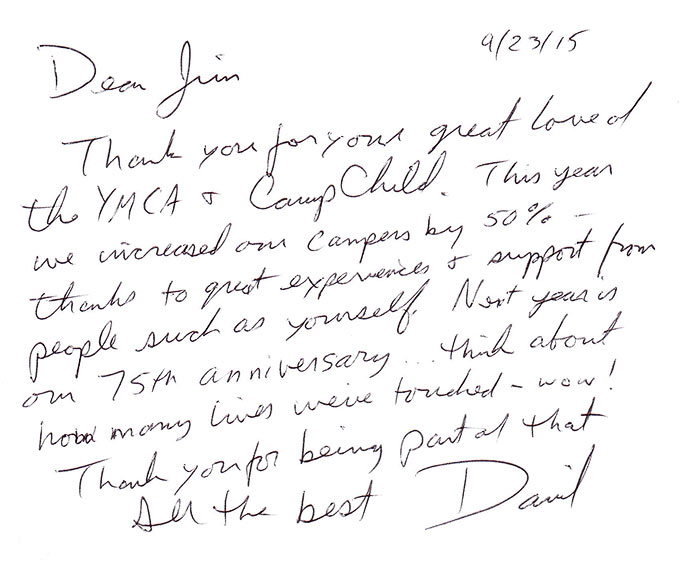 9/23/15
Dear Jim
Thank you for your great love of
the YMCA & Camp Child. This year
we increased our campers by 50% -
thanks to great experiences & support from
people such as yourself. Next year is
our 75th anniversary... think about
how many lives we've touched - wow!
Thank you for being part of that
All the best David